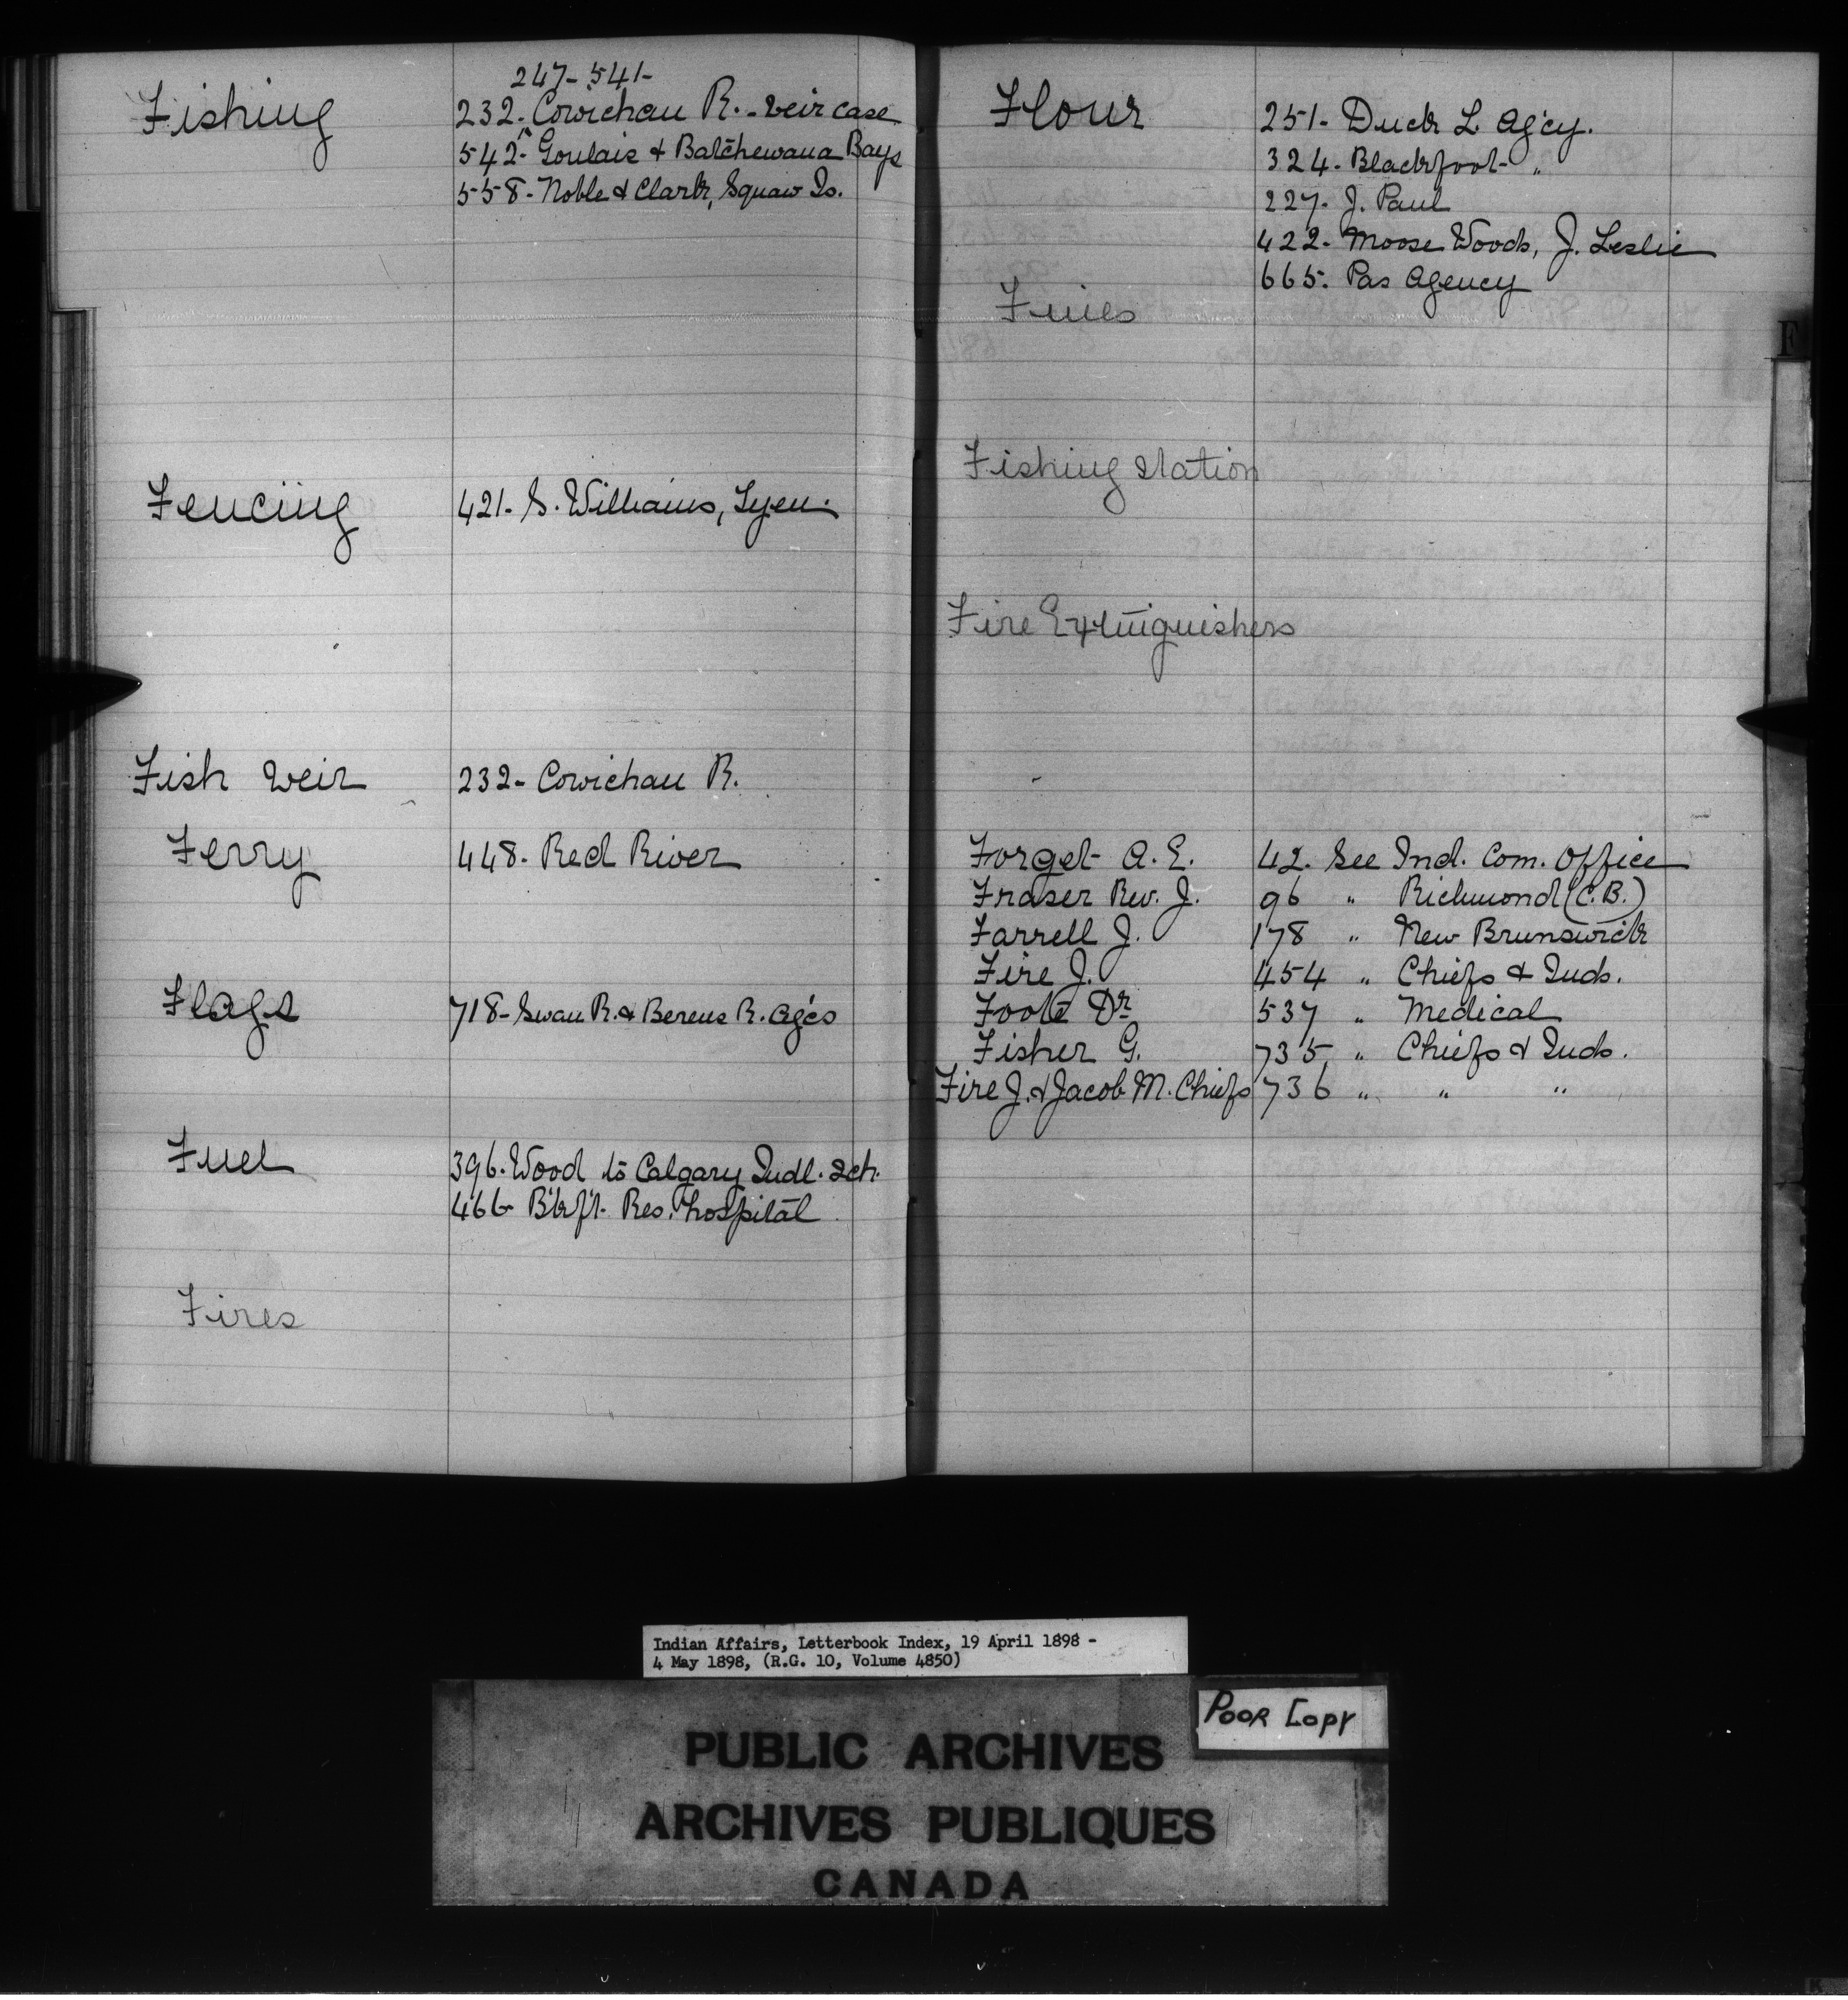 247- 541-
Fishing 232- Cowichan R. - weir case
542- Goulais & Batchewana Bays
558- Noble & Clark, Squaw Is.
Fencing 421- S. Williams, Tyen.
Fish weir 232- Cowichan R.
Ferry 448- Red River
Flags 718- Swan R. & Berens R. Ag'cs
Fuel 396. Wood to Calgary Indl. Sch.
466- B'kf't. Res. hospital
Fires
Flour 251- Duck L. Ag'cy.
324- Blackfoot- "
227- J. Paul
422- Moose Woods, J. Leslie
665. Pas Agency
Fines
Fishing Station
Fire Extinguishers
Forget A. E. 42. See Ind. Com. Office
Fraser Rev. J. 96 " Richmond (C.B.)
Farrell J. 178 " New Brunswick
Fire J. 454 " Chiefs & Inds.
Foote Dr 537 " Medical
Fisher G. 735 " Chiefs & Inds.
Fire J. & Jacob M. Chiefs 736 " " "
F
Indian Affairs, Letterbook Index, 19 April 1898 -
4 May 1898, (R.G. 10, Volume 4850)
POOR COPY
PUBLIC ARCHIVES
ARCHIVES PUBLIQUES
CANADA